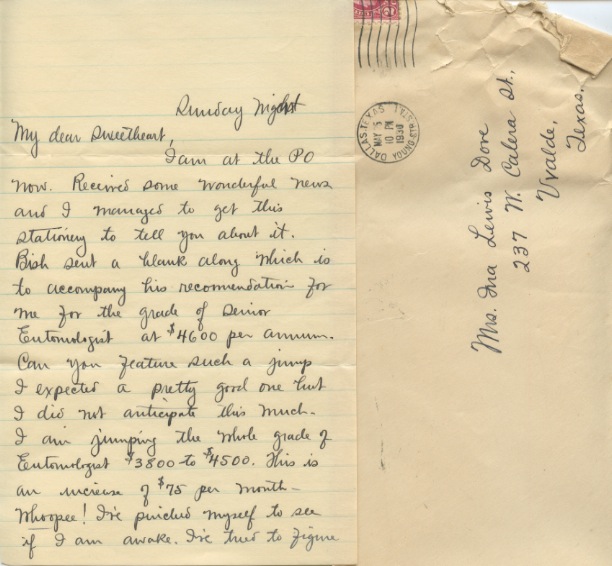 Sunday Night
My dear Sweetheart,
I am at the PO
now. Received some wonderful news
and I managed to get this
stationery to tell you about it.
Bish sent a blank along which is
to accompany his recomendation for
me for the grade of Senior
Entomologist at $4600 per annum.
Can you feature such a jump
I expected a pretty good one but
I did not anticipate this much-
I am jumping the whole grade of
Entomologist $3800 to $4500. This is
an increase of $75 per month-
Whoopee! I've pinched myself to see
if I am awake. I've tried to figure
DALLAS, TEXAS
MAY 5
10 PM
1930
Mrs. Ina Lewis Dove
237 W. Calera St.,
Uvalde,
Texas.